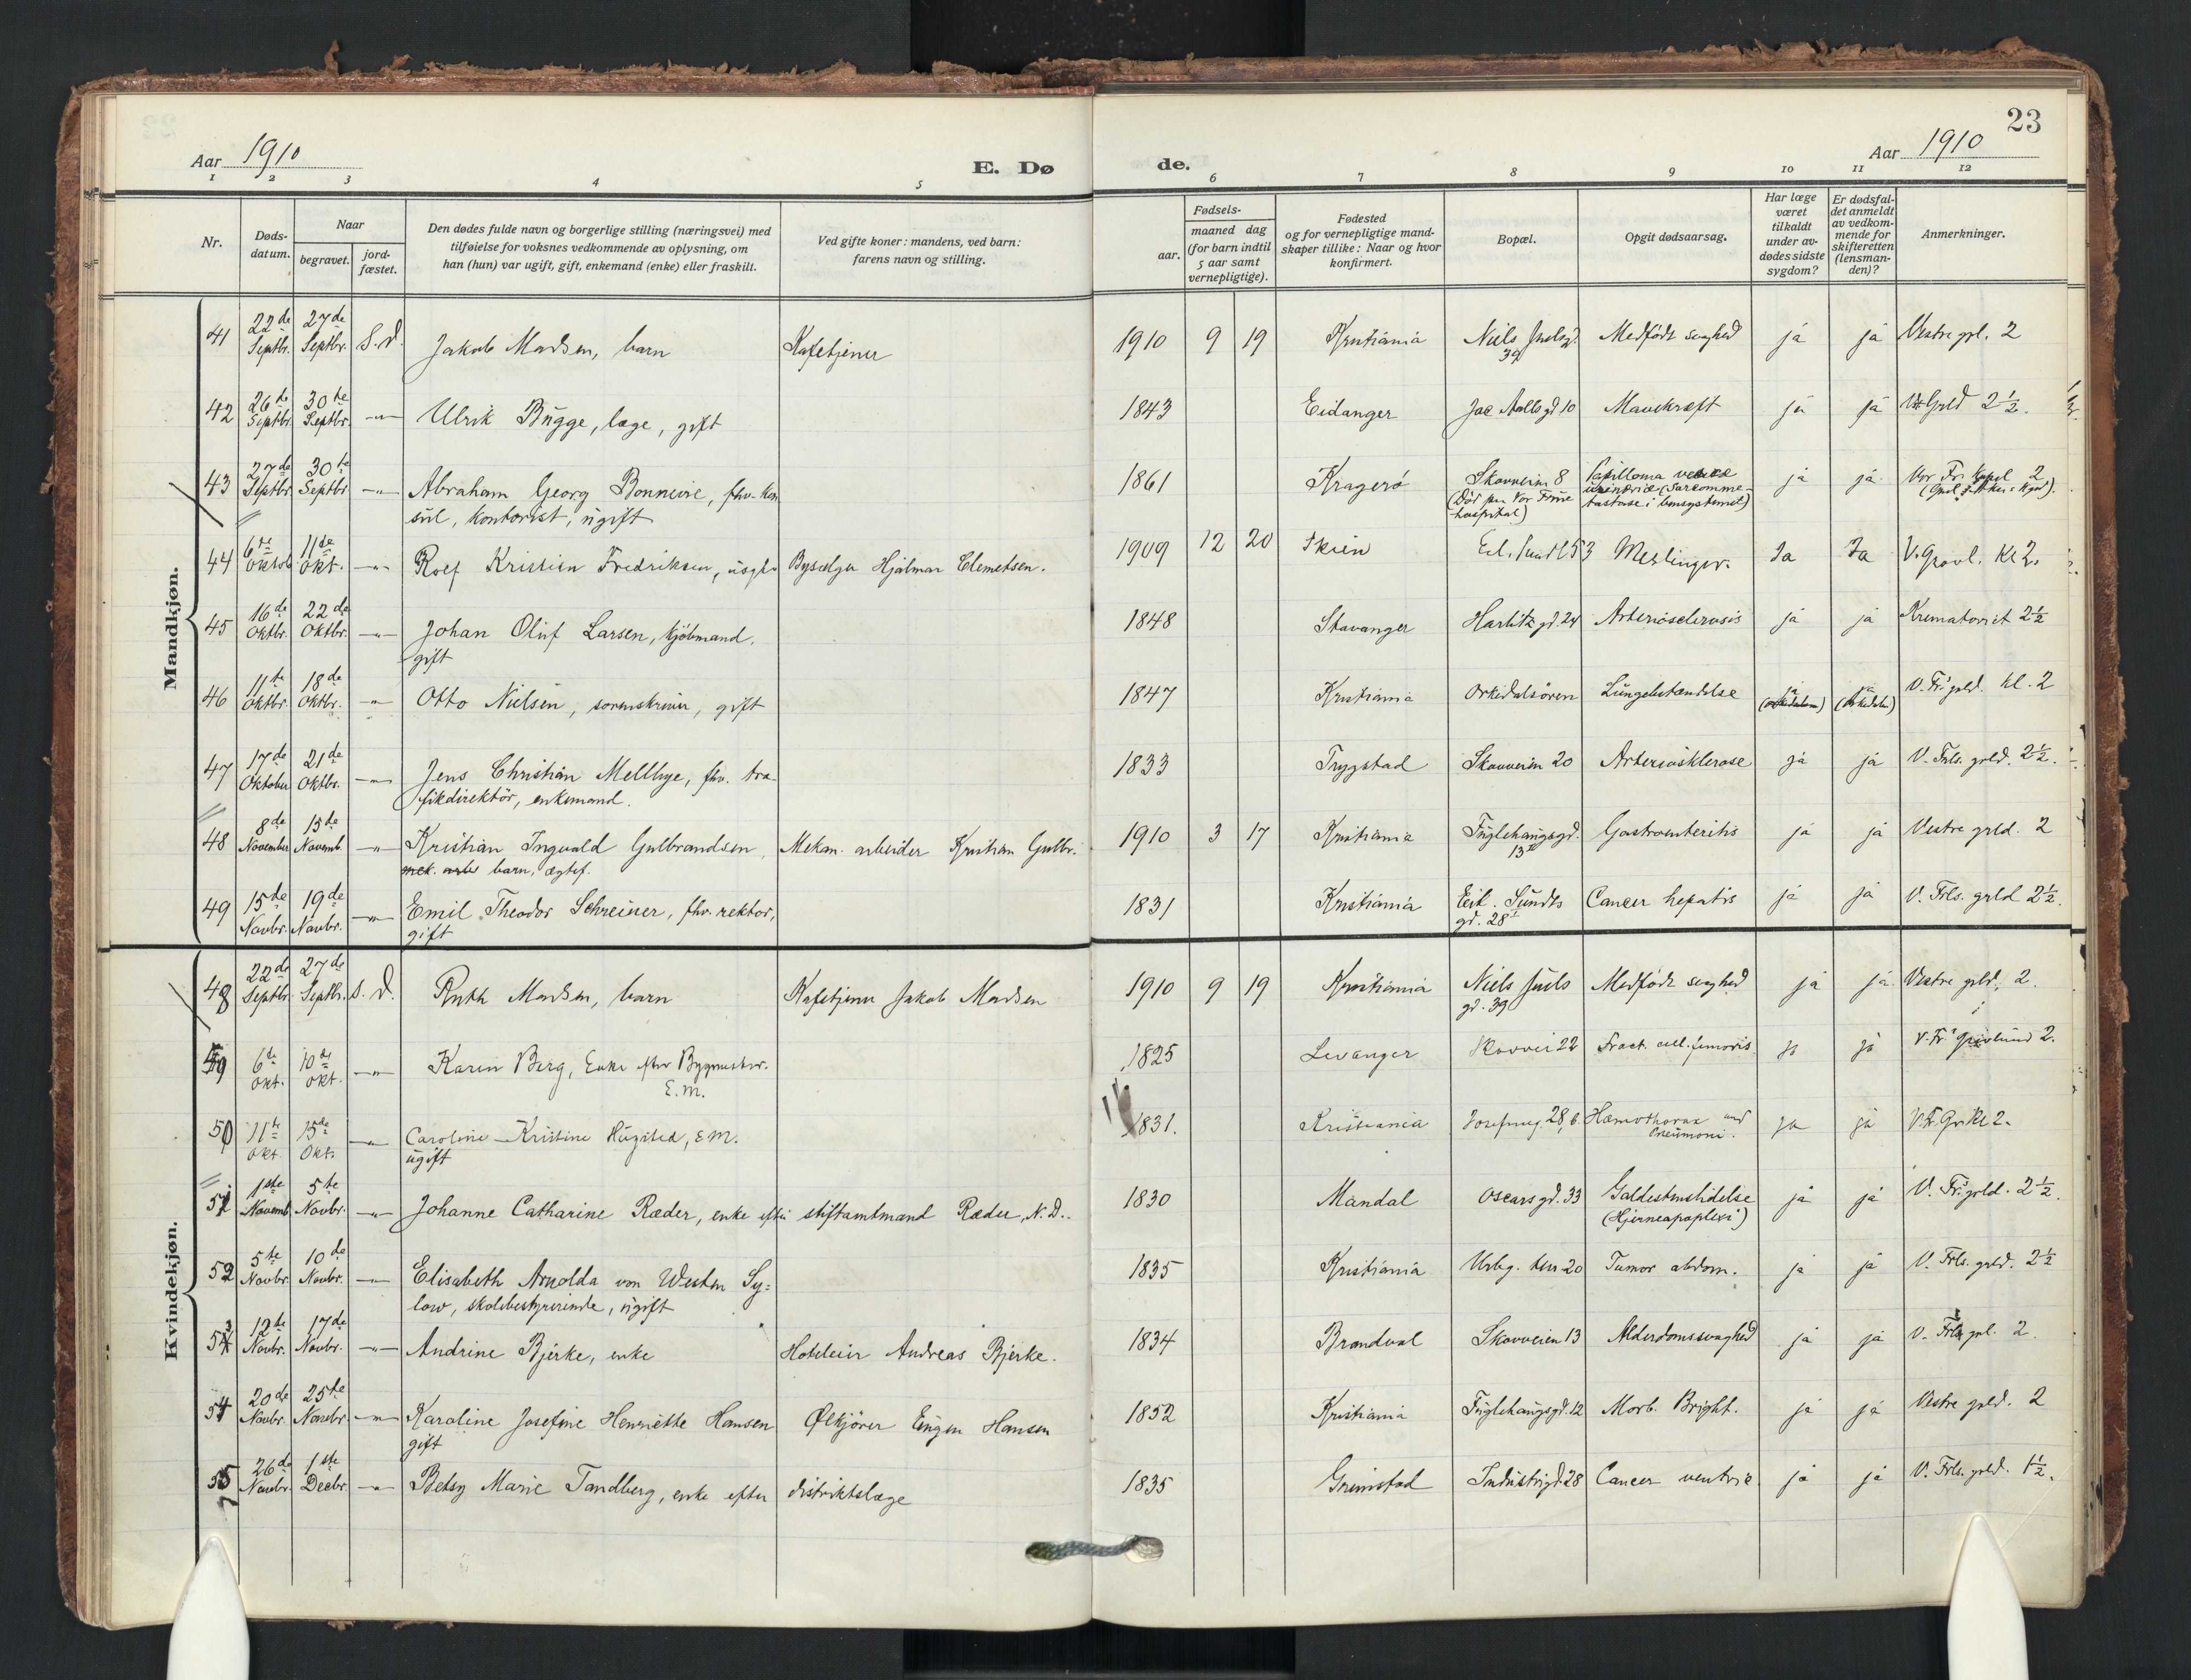 23
Aar 1910
E. Dø
de.
Aar 1910
1 2 3 4 5 6 7 8 9 10 11 12
Nr.
Døds-
datum.
Naar
begravet.
jord-
fæstet.
Den dødes fulde navn og borgerlige stilling (næringsvei) med
tilføielse for voksnes vedkommende av oplysning, om
han (hun) var ugift, gift, enkemand (enke) eller fraskilt.
Ved gifte koner: mandens, ved barn:
farens navn og stilling.
Fødsels-
aar.
maaned dag
(for barn indtil
5 aar samt
vernepligtige).
Fødested
og for vernepligtige mand-
skaper tillike: Naar og hvor
konfirmert.
Bopæl.
Opgit dødsaarsag.
Har læge
været
tilkaldt
under av-
dødes sidste
sygdom?
Er dødsfal-
det anmeldt
av vedkom-
mende for
skifteretten
(lensman-
den)?
Anmerkninger.
Mandkjøn.
41 22de Septbr. 27de Septbr. S.d. Jakob Madsen, barn Kafetjener 1910 9 19 Kristiania Niels Juelsgd. 39 Medfödt svaghed já já Vestre grl. 2
42 26de Septbr. 30te Septbr. -"- Ulrik Bugge, læge, gift 1843 Eidanger Jac Aallsgd 10 Mavekræft já já Vr Grld 2½.
43 27de Septbr. 30te Septbr -"- Abraham Georg Bonnevie, fhv. kon
sul, kontorist, ugift 1861 Kragerö Skovveien 8
(Död paa Vor Frue
hospital) Papilloma
(Sarcomme-
tastase i bensystemet) já já Vor Fr. Kapel 2
44 6te Oktob. 11de Okt. -"- Rolf Kristian Fredriksen, Bysælger Hjalmar Clemetsen. 1909 12 20 Skien Eil. Sundt 53 Meslinger. Ja Ja V. Gravl. Kl 2.
45 16de Oktbr. 22de Oktbr. -"- Johan Oluf Larsen, kjöbmand,
gift 1848 Stavanger Harbitzgd. 24 Arteriosclerosis já já Krematoriet 2½
46 11te Oktbr. 18de Oktbr. -"- Otto Nielsen, sorenskriver, gift 1847 Kristiania Orkedalsören Lungebetændelse já (Orkedalen) já (Orkedalen) V. Fr. grld. kl. 2
47 17de Oktober 21de Oktbr. -"- Jens Christian Mellbye, fhv. tra-
fikdirektör, enkemand. 1833 Trygstad Skovveien 20 Arteriosklerose já já V. Frls. grld. 2½.
48 8de November 15de Novemb -"- Kristian Ingvald Gulbrandsen,
mek. arb barn, ægtef. Mekan. arbeider Kristian Gulbr. 1910 3 17 Kristiania Fuglehaugsgd.
13 Gastroenteritis já já Vestre grld. 2
49 15de Novbr. 19de Novbr. -"- Emil Theodor Schreiner, fhv. rektor,
gift 1831 Kristiania Eil. Sundts
gd. 28 Cancer hepatis já já V. Frls. grld 2½.
Kvindekjøn.
48 22de Septbr. 27de Septbr. S. d. Ruth Madsen, barn Kafetjener Jakob Madsen 1910 9 19 Kristiania Niels Juels
gd. 39 Medfödt svaghed já já Vestre grld. 2.
49 6te Okt. 10de Okt. -"- Karen Berg, Enke efter Bygmester.
E.M. 1825 Levanger Skovvei 22 Fract. coll. femoris ja já V. Fr. Gravlund 2.
50 11te Okt. 15de Okt. -"- Caroline Kristine Hugsted, E.M.
ugift 1831. Kristiania Josefinsg. 28, 6. Hæmothorax med
Pneumoni. ja já V. F. Gr. Kl 2.
51 1ste Novemb. 5te Novbr. -"- Johanne Catharine Ræder, enke efter stiftamtmand Ræder, N.D. 1830 Mandal Oscarsgd. 33 Galdestenslidelse
(Hjerneapoplexi) já já V. Fr. grld. 2½.
52 5te Novbr. 10de Novbr. -"- Elisabeth Arnolda von Westen Sy-
low, skolebestyrerinde, ugift 1835 Kristiania 20 Tumor abdom. já já V. Frls. grld. 2½
53 12te Novbr. 17de Novbr. -"- Andrine Bjerke, enke Hoteleier Andreas Bjerke. 1834 Brandval Skovveien 13 Alderdomssvaghed já já V. Frls grl. 2.
54 20de Novbr. 25te Novbr. -"- Karoline Josefine Henriette Hansen
gift Ølkjörer Eugen Hansen 1852 Kristiania Fuglehaugsgd. 12 Morb. Bright. já já Vestre grld. 2
55 26de Novbr. 1ste Decbr. -"- Betsy Marie Tandberg, enke efter distriktslæge 1835 Grimstad Industrigd. 28 Cancer ventric já já V. Frls. grld. 1½.